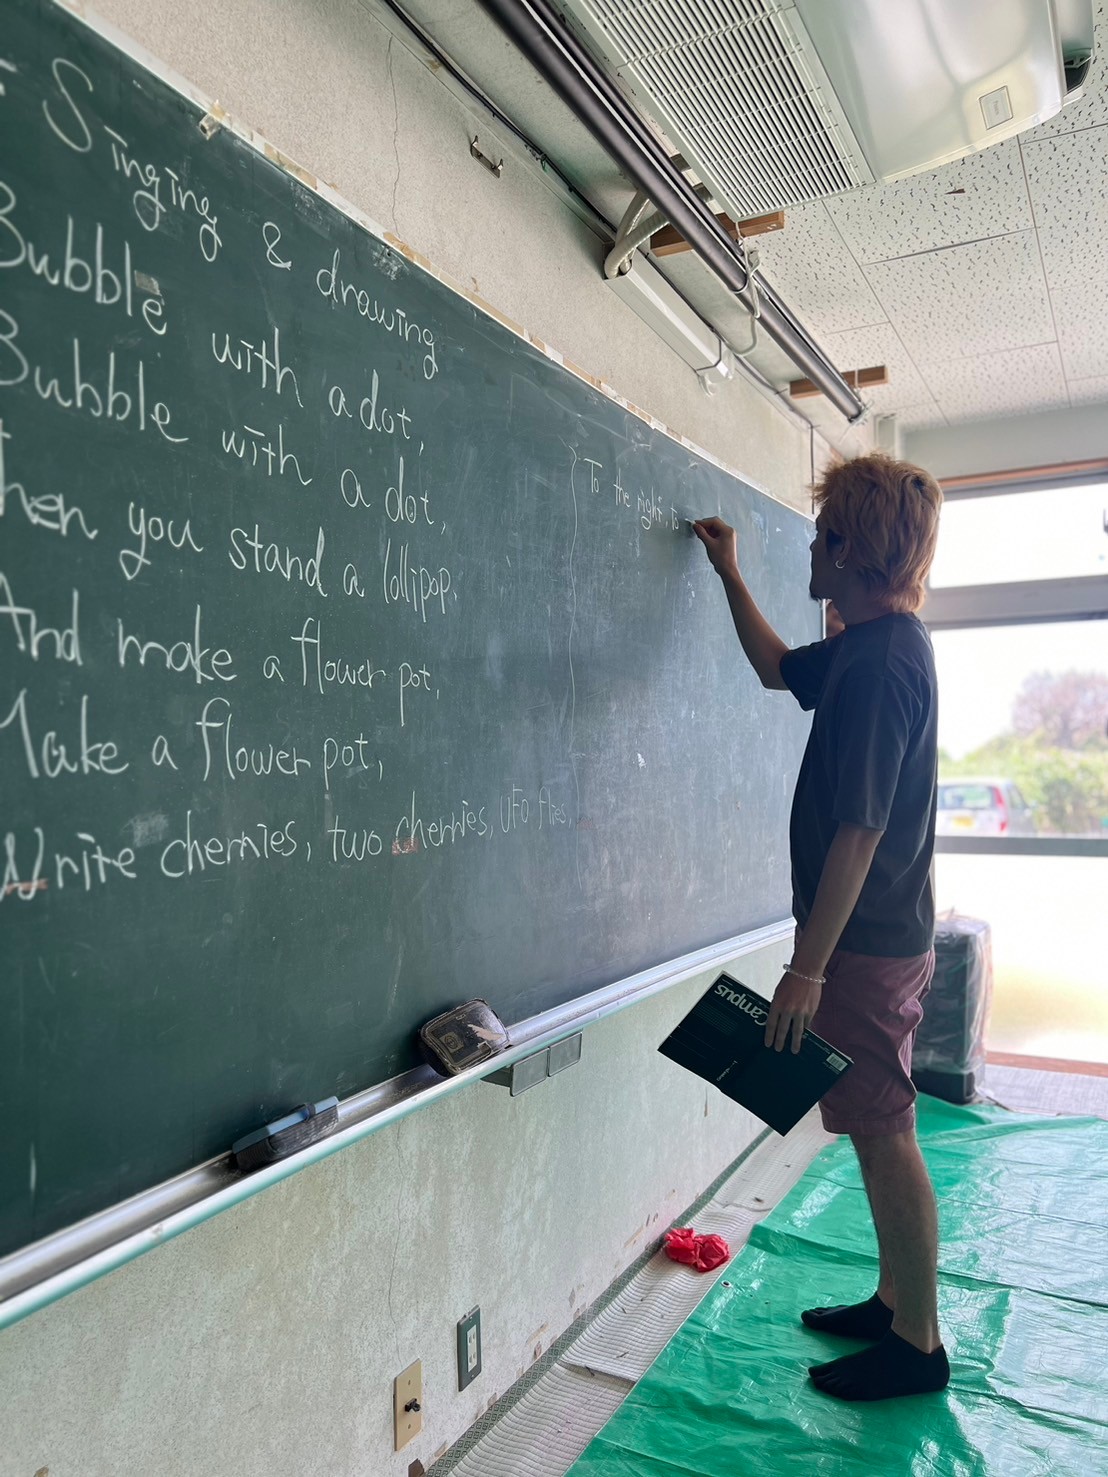 Singing & drawing
Bubble with a dot,
Bubble with a dot,
hen you stand a lollipop.
And make a flower pot,
Make a flower pot,
Write cherries, two cherries, UFO flies,
To the right, to
Campus